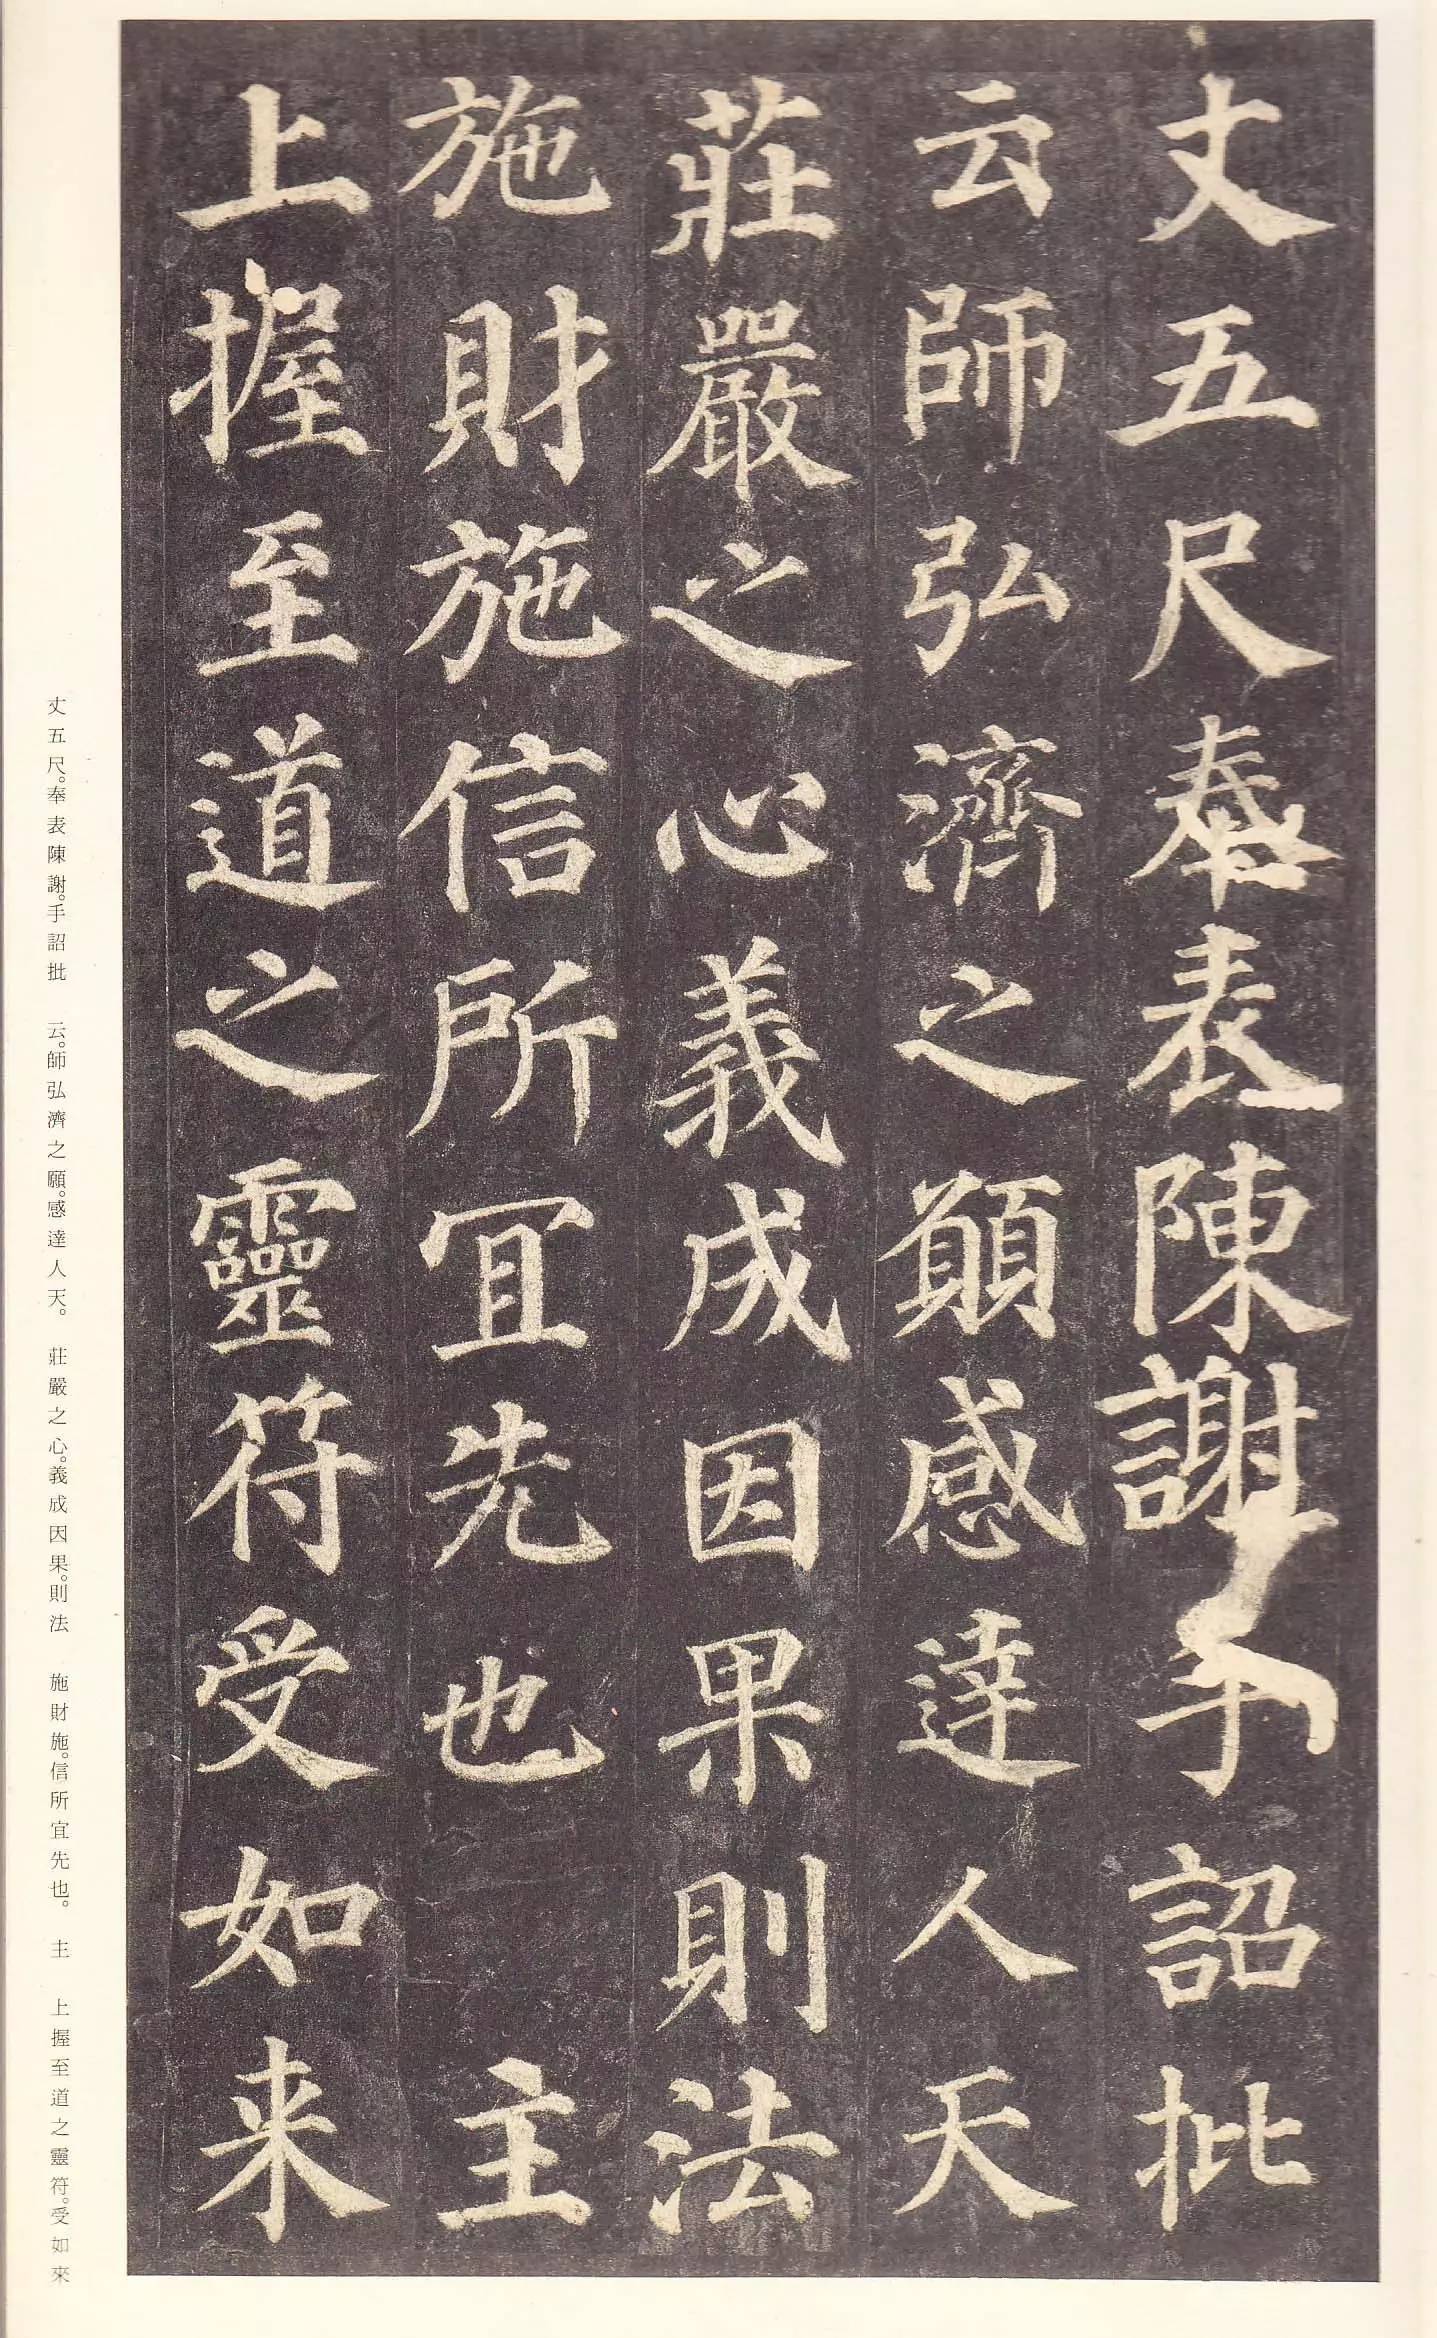 丈五尺奉表陳謝手詔批
云師弘濟之願感達人天
莊嚴之心義成因果則法
施財施信所宜先也 主
上握至道之靈符受如来
丈五尺。奉表陳謝。手詔批 云。師弘濟之願。感達人天。 莊嚴之心。義成因果。則法 施財施。信所宜先也。 主 上握至道之靈符。受如來